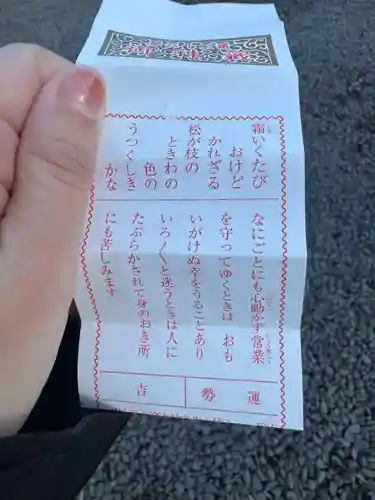 霜いくたび
おけど
かれざる
松が枝の
ときわの
色の
うつくしき
かな
なにごとにも心動かず常業
を守ってゆくときは おも
いがけぬ幸をうることあり
いろ〳〵と迷うときは人に
たぶらかされて身のおき所
にも苦しみます
運勢 吉